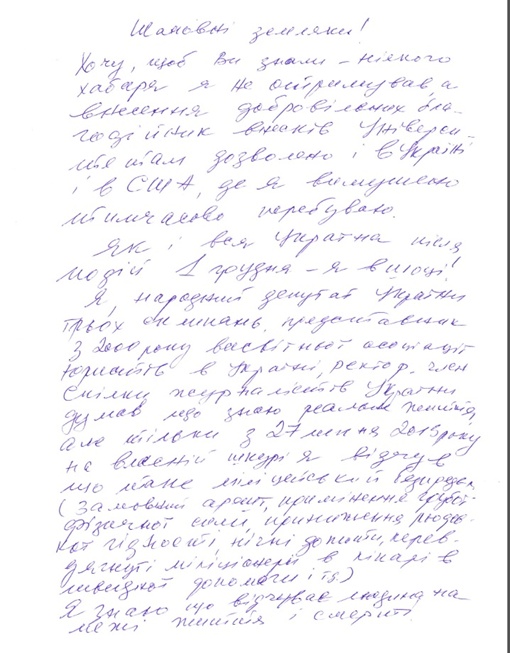 Шановні земляки!
Хочу, щоб Ви знали – ніякого
хабаря я не отримував, а
внесення добровільних бла-
годійних внесків Універси-
тетам дозволено і в Україні
і в США, де я вимушено
тимчасово перебуваю.
Як і вся Україна після
подій 1 грудня – я в шоці!
Я, народний депутат України
трьох скликань, представник
з 2000 року всесвітньої асоціації
юристів в Україні, ректор, член
Спілки журналістів України
думав що знаю реальне життя,
але тільки з 27 липня 2013 року
на власній шкурі я відчув
що таке міліцейський безпредел
(Замовний арешт, примінення грубої
фізичної сили, приниження людсь-
кої гідності, нічні допити, перев-
дягнуті міліціонери в лікарі в
швидкої допомоги і т.д.)
Я знаю що відчуває людина на
межі життя і смерті.